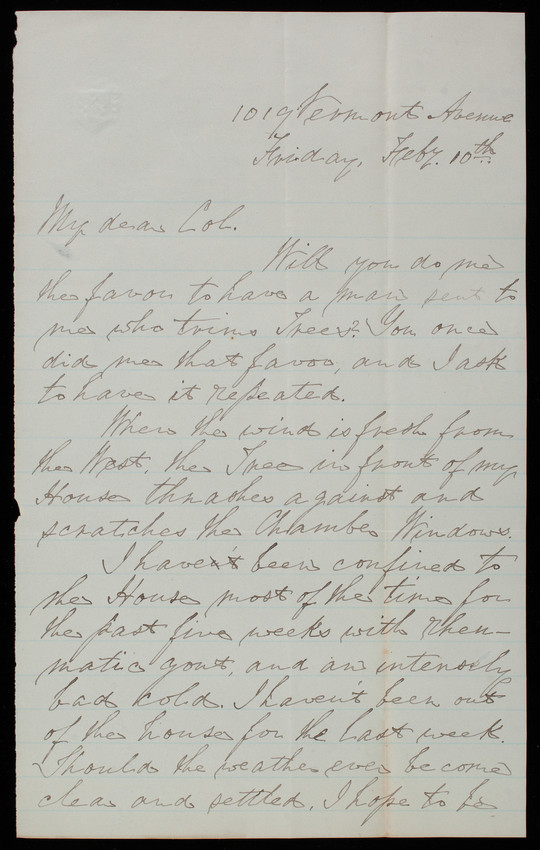 1019 Vermont Avenue
Friday, Feby. 10th.
My dear Col.
Will you do me
the favor to have a man sent to
me who trims Trees? You once
did me that favor, and I ask
to have it repeated.
When the wind is fresh from
the West, the Tree in front of my
House thrashes against and
scratches the Chamber Windows.
I haven't been confined to
the House most of the time for
the past five weeks with rheu-
matic gout, and an intensely
bad cold. I haven't been out
of the house for the last week.
Should the weather ever become
clear and settled, I hope to be